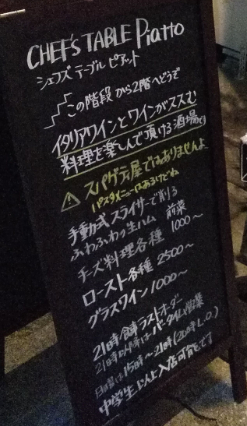 CHEF's TABLE Piatto
シェフズ テーブル ピアット
この階段から2階へどうぞ
イタリアワインとワインがススむ
料理を楽しんで頂ける酒場です
スパゲティ屋ではありませんよ
パスタメニューはあるけどね
手動式スライサーで削る
ふわふわっ生ハム 前菜
チーズ料理各種 1000〜
ロースト各種 2500〜
グラスワイン 1000〜
21時 ラストオーダー
21時
日曜は15時〜21時(20時L.O.)
中学生 入店可